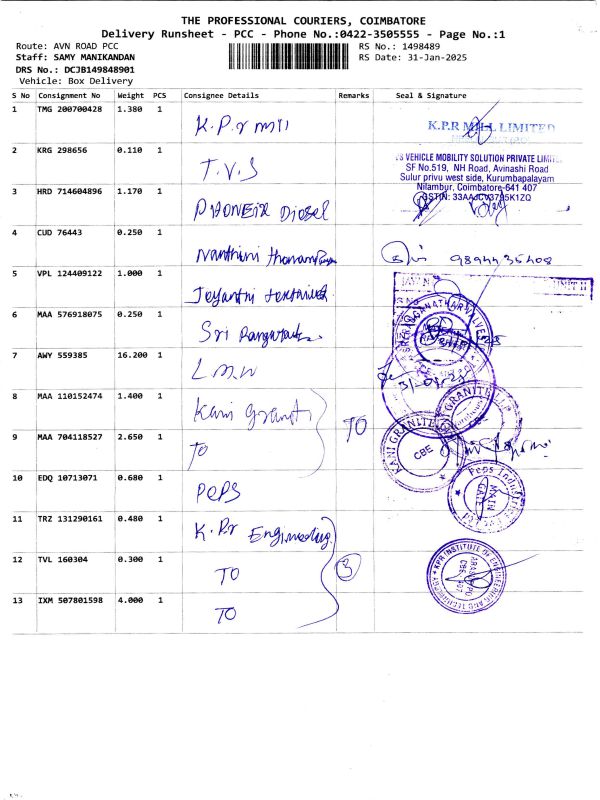 THE PROFESSIONAL COURIERS, COIMBATORE
Delivery Runsheet - PCC - Phone No.:0422-3505555 - Page No.:1
Route: AVN ROAD PCC
RS No.: 1498489
Staff: SAMY MANIKANDAN
RS Date: 31-Jan-2025
DRS No.: DCJB149848901
Vehicle: Box Delivery
S No Consignment No Weight PCS Consignee Details Remarks Seal & Signature
1 TMG 200700428 1.380 1 K.P.r mill K.P.R MILL LIMITED
2 KRG 298656 0.110 1 T.V.S
VEHICLE MOBILITY SOLUTION PRIVATE
SF No.519, NH Road, Avinashi Road
Sulur privu west side, Kurumbapalayam
Nilambur, Coimbatore-641 407
GSTIN: 33AAJCV3795K1ZQ
3 HRD 714604896 1.170 1 PHONEIX Diesel
4 CUD 76443 0.250 1 Nanthini
5 VPL 124409122 1.000 1 Jeyanthi
UNIT II
6 MAA 576918075 0.250 1 Sri
7 AWY 559385 16.200 1 L.M.W
8 MAA 110152474 1.400 1 Kani
TO
9 MAA 704118527 2.650 1 TO
KANI GRANITE
CBE
10 EDQ 10713071 0.680 1 PEPS
Peps
MAIN
GATE
11 TRZ 131290161 0.480 1 K.P.r Engineering
12 TVL 160304 0.300 1 TO 3
KPR INSTITUTE OF ENGINEERING AND TECHNOLOGY
13 IXM 507801598 4.000 1 TO